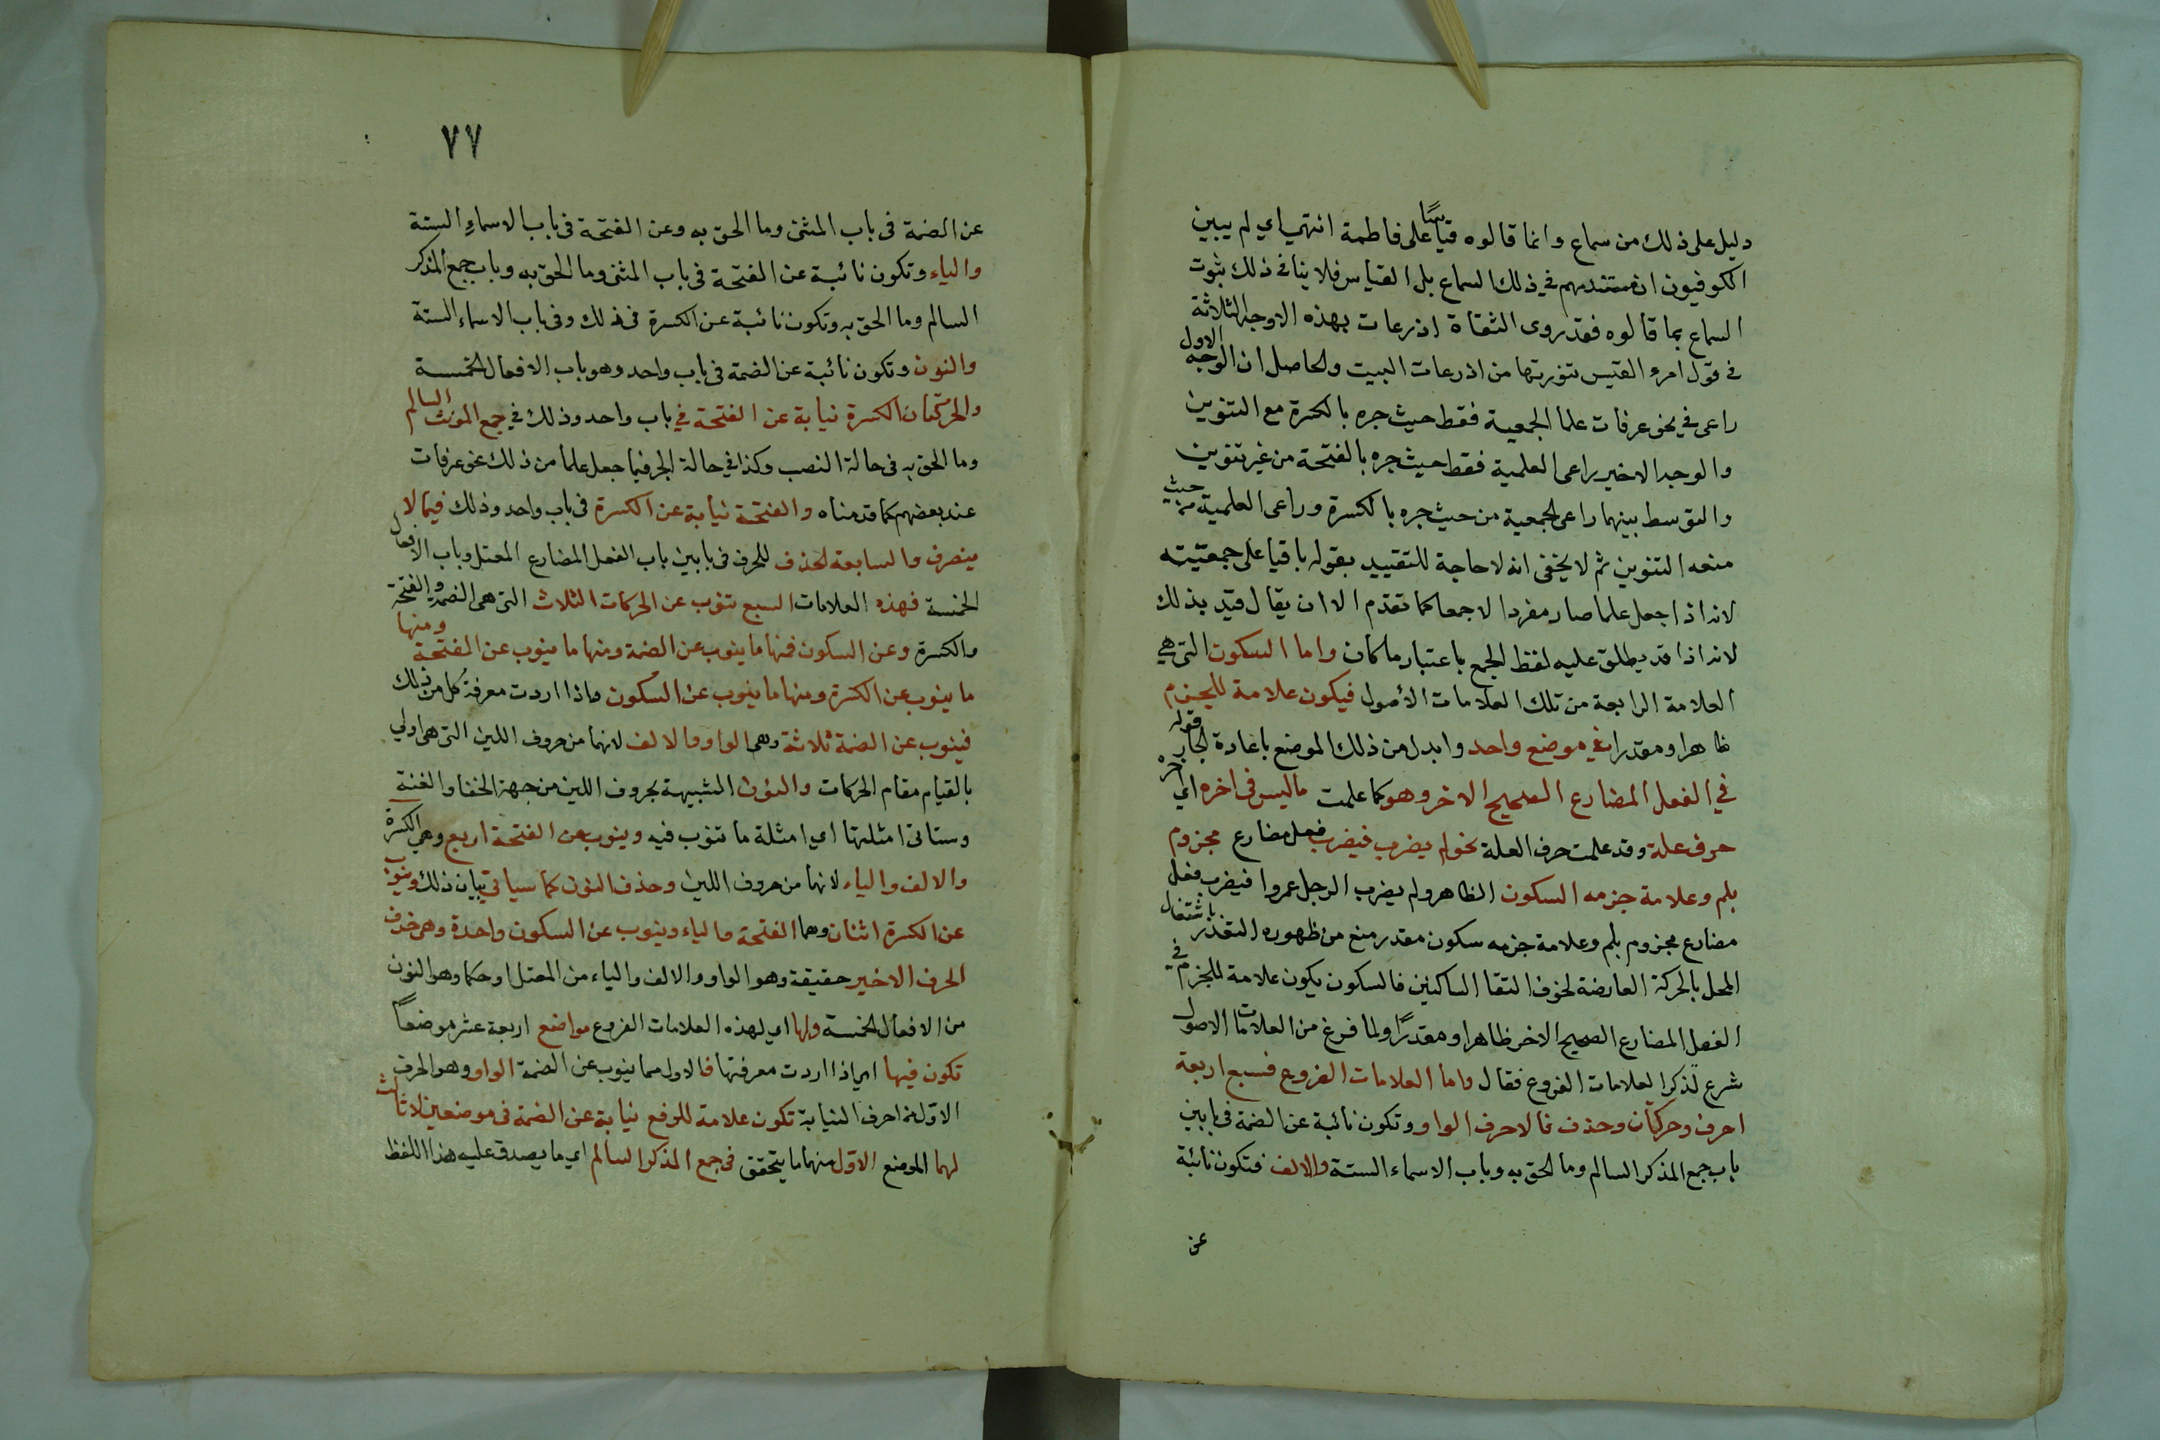 دليل على ذلك من سماع وانما قالوه قياسًا على فاطمة انتهى اي لم يبين
الكوفيون ان مستندهم في ذلك السماع بل القياس فلا ينافى ذلك ثبوت
السماع بما قالوه فقد روى الثقاة اذرعات بهذه الاوجه الثلاثة
في قول امرء القيس تنورتها من اذرعات البيت والحاصل ان الوجه الاول
راعى في نحو عرفات علما الجمعية فقط حيث جره بالكسرة مع التنوين
والوجه الاخير راعى العلمية فقط حيث جره بالفتحة من غير تنوين
والمتوسط بينهما راعى الجمعية من حيث جره بالكسرة وراعى العلمية من حيث
منعه التنوين ثم لا يخفى انه لا حاجة للتقييد بقوله باقيا على جمعيته
لانه اذا جعل علما صار مفردا لا جمعا كما تقدم الا ان يقال قيد بذلك
لانه اذا قد يطلق عليه لفظ الجمع باعتبار ما كان واما السكون التى هي
العلامة الرابعة من تلك العلامات الأصول فيكون علامة للجزم
ظاهرا ومقدرا في موضع واحد وابدل من ذلك الموضع باعادة الجار قوله
في الفعل المضارع الصحيح الاخر وهو كما علمت ما ليس فى اخره اي اخره
حرف علة وقد علمت حرف العلة نحو لم يضرب فيضرب فعل مضارع مجزوم
بلم وعلامة جزمه السكون الظاهر ولم يضرب الرجل عمروا فيضرب فعل
مضارع مجزوم بلم وعلامة جزمه سكون مقدر منع من ظهوره التعذر باشتغال
المحل بالحركة العارضة لخوف التقا الساكنين فالسكون يكون علامة للجزم في
الفعل المضارع الصحيح الاخر ظاهرا ومقدرًا ولما فرغ من العلامات الاصول
شرع لذكر العلامات الفروع فقال واما العلامات الفروع فسبع اربعة
احرف وحركتان وحذف فالاحرف الواو وتكون نائبة عن الضمة فى بابين
باب جمع المذكر السالم وما الحق به وباب الاسماء الستة والالف فتكون نائبة
عن
٧٧
عن الضمة فى باب المثنى وما الحق به وعن الفتحة فى باب الاسماء الستة
والياء وتكون نائبة عن الفتحة فى باب المثنى وما الحق به وباب جمع المذكر
السالم وما الحق به وتكون نائبة عن الكسرة فى ذلك وفى باب الاسماء الستة
والنون وتكون نائبة عن الضمة فى باب واحد وهو باب الافعال الخمسة
والحركتان الكسرة نيابة عن الفتحة في باب واحد وذلك في جمع المونث السالم
وما الحق به فى حالة النصب وكذا في حالة الجر فيما جعل علما من ذلك نحو عرفات
عند بعضهم كما قدمناه والفتحة نيابة عن الكسرة فى باب واحد وذلك فيما لا
ينصرف والسابعة الحذف للحرف فى بابين باب الفعل المضارع المعتل وباب الافعال
الخمسة فهذه العلامات السبع تنوب عن الحركات الثلاث التى هى الضمة والفتحة
والكسرة وعن السكون فمنها ما ينوب عن الضمة ومنها ما ينوب عن الفتحة ومنها
ما ينوب عن الكسرة ومنها ما ينوب عن السكون واذا اردت معرفة كل من ذلك
فينوب عن الضمة ثلاثة وهم الواو والالف لانهما من حروف اللين التى هى اولي
بالقيام مقام الحركات والنون الشبيهة بحروف اللين من جهة الخفا والغنة
وستاتى امثلتها اي امثلة ما تنوب فيه وينوب عن الفتحة اربع وهي الكسرة
والالف والياء لانها من حروف اللين وحذف النون كما سياتي بيان ذلك وينوب
عن الكسرة اثنان وهما الفتحة والياء وينوب عن السكون واحدة وهى حذف
الحرف الاخير حقيقة وهو الواو والالف والياء من المعتل او حكما وهو النون
من الافعال الخمسة ولها اي لهذه العلامات الفروع مواضع اربعة عشر موضعاً
تكون فيها اي اذا اردت معرفتها فالاول مما ينوب عن الضمة الواو وهو الحرف
الاوّل من احرف النيابة تكون علامة للرفع نيابة عن الضمة فى موضعين لا ثالث
لهما الموضع الاوّل منهما ما يتحقق فى جمع المذكر السالم اي ما يصدق عليه هذا اللفظ